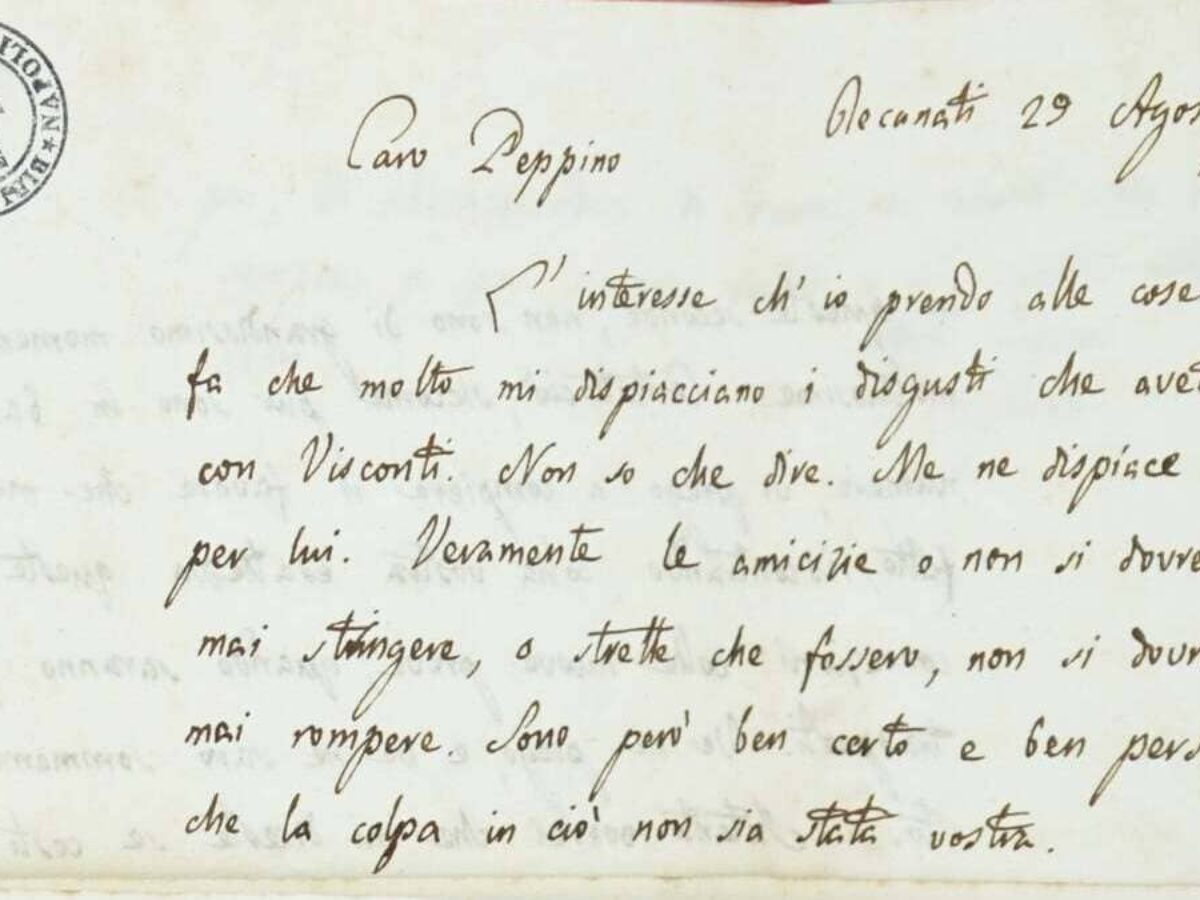 NAPOLI * BIB
Recanati 29 Agos
Caro Peppino
L' interesse ch' io prendo alle cose
fa che molto mi dispiacciano i disgusti che avet
con Visconti. Non so che dire. Me ne dispiace
per lui. Veramente le amicizie o non si dovre
mai stringere, o strette che fossero, non si dovr
mai rompere. Sono però ben certo e ben pers
che la colpa in ciò non sia stata vostra.